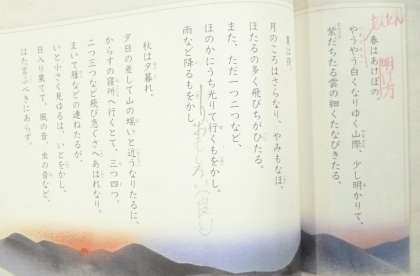 明け方
春はあけぼの。
やうやう白くなりゆく山際、少し明かりて、
紫だちたる雲の細くたなびきたる。
夏は夜。
月のころはさらなり、やみもなほ、
ほたるの多く飛びちがひたる。
また、ただ一つ二つなど、
ほのかにうち光りて行くもをかし。
雨など降るもをかし。
秋は夕暮れ。
夕日の差して山の端いと近うなりたるに、
からすの寝所へ行くとて、三つ四つ、
二つ三つなど飛び急ぐさへあはれなり。
まいて雁などの連ねたるが、
いと小さく見ゆるは、いとをかし。
日入り果てて、風の音、虫の音など、
はた言ふべきにあらず。